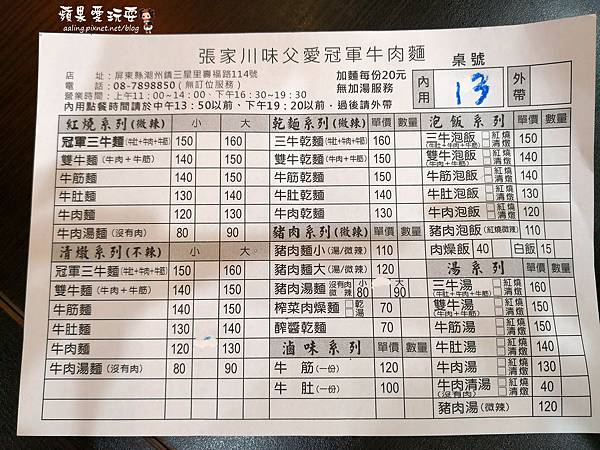 蘋果愛玩耍
aaling.pixnet.net/blog
張家川味父愛冠軍牛肉麵
桌號
店 址：屏東縣潮州鎮三星里壽福路114號
電 話：08-7898850（無訂位服務）
營業時間：上午11：00~14：00、下午16：30~19：30
內用點餐時間請於中午13：50以前、下午19：20以前，過後請外帶
加麵每份20元
無加湯服務
內用 13 外帶
紅燒系列(微辣) 小 大
冠軍三牛麵(牛肚+牛肉+牛筋) 150 160
雙牛麵(牛肉+牛筋) 140 150
牛筋麵 140 150
牛肚麵 130 140
牛肉麵 120 130
牛肉湯麵(沒有肉) 80 90
清燉系列(不辣) 小 大
冠軍三牛麵(牛肚+牛肉+牛筋) 150 160
雙牛麵(牛肉+牛筋) 140 150
牛筋麵 140 150
牛肚麵 130 140
牛肉麵 120 130
牛肉湯麵(沒有肉) 80 90
乾麵系列(微辣) 單價 數量
三牛乾麵(牛肚+牛肉+牛筋) 160
雙牛乾麵(牛肉+牛筋) 150
牛筋乾麵 150
牛肚乾麵 140
牛肉乾麵 130
豬肉系列(微辣) 單價 數量
豬肉麵小(湯/微辣) 110
豬肉麵大(湯/微辣) 120
豬肉湯麵 沒有肉 微辣 小 80 大 90
榨菜肉燥麵 □乾 □湯 70
醡醬乾麵 70
滷味系列 單價 數量
牛 筋(一份) 120
牛 肚(一份) 100
泡飯系列 單價 數量
三牛泡飯(牛肚+牛肉+牛筋) □紅燒 □清燉 150
雙牛泡飯(牛肉+牛筋) □紅燒 □清燉 140
牛筋泡飯 □紅燒 □清燉 140
牛肚泡飯 □紅燒 □清燉 130
牛肉泡飯 □紅燒 □清燉 120
豬肉泡飯(紅燒微辣) 110
肉燥飯 40 白飯 15
湯系列 單價 數量
三牛湯(牛肚+牛肉+牛筋) □紅燒 □清燉 160
雙牛湯(牛肉+牛筋) □紅燒 □清燉 150
牛筋湯 □紅燒 □清燉 150
牛肚湯 □紅燒 □清燉 140
牛肉湯 □紅燒 □清燉 130
牛肉清湯(沒有肉) □紅燒 □清燉 40
豬肉湯(微辣) 120